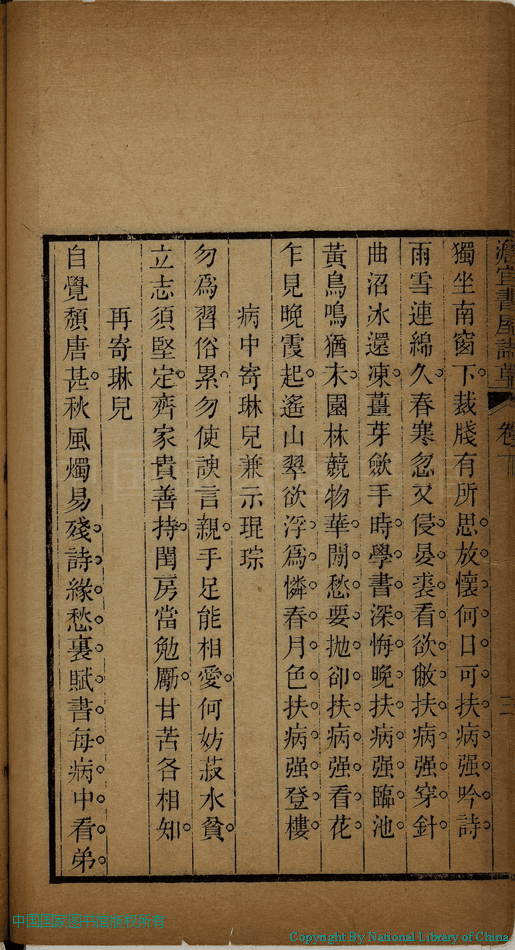 澹宜書屋詩草 卷下 二
獨坐南窗下裁牋有所思放懷何日可扶病强吟詩
雨雪連綿久春寒忽又侵晏裘看欲敝扶病强穿針
曲沼冰還凍薑芽歛手時學書深悔晚扶病强臨池
黃鳥鳴猶未園林競物華閒愁要抛卻扶病强看花
乍見晚霞起遙山翠欲浮為憐春月色扶病强登樓
病中寄琳兒兼示琨琮
勿為習俗累勿使諛言親手足能相愛何妨菽水貧
立志須堅定齊家貴善持閨房當勉勵甘苦各相知
再寄琳兒
自覺頽唐甚秋風燭易殘詩緣愁裏賦書每病中看弟
中国国家图书馆版权所有
Copyright By National Library of China